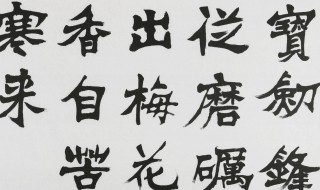 寶劍鋒
従磨礪
出梅花
香自苦
寒来